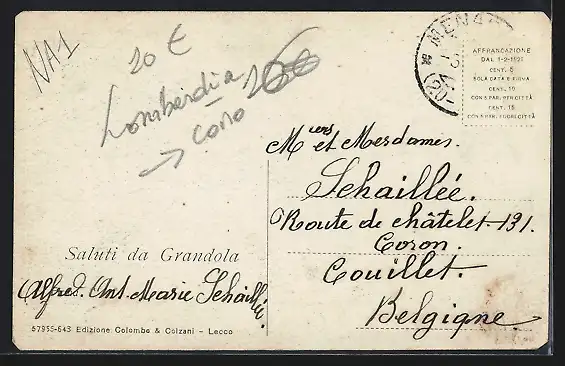 NA1
20 €
Lombardia
como
MENA
AFFRANCAZIONE
DAL 1-2-1921
CENT. 5
SOLA DATA E FIRMA
CENT. 10
CON 5 PAR. PER CITTÀ
CENT. 15
CON 5 PAR. FUORI CITTÀ
Mrs et Mesdames.
Schaillée.
Route de châtelet-131.
Coron.
Couillet.
Belgique.
Saluti da Grandola
Alfred. Ant. Marie Schaillée.
57955-643 Edizione Colombo & Colzani - Lecco